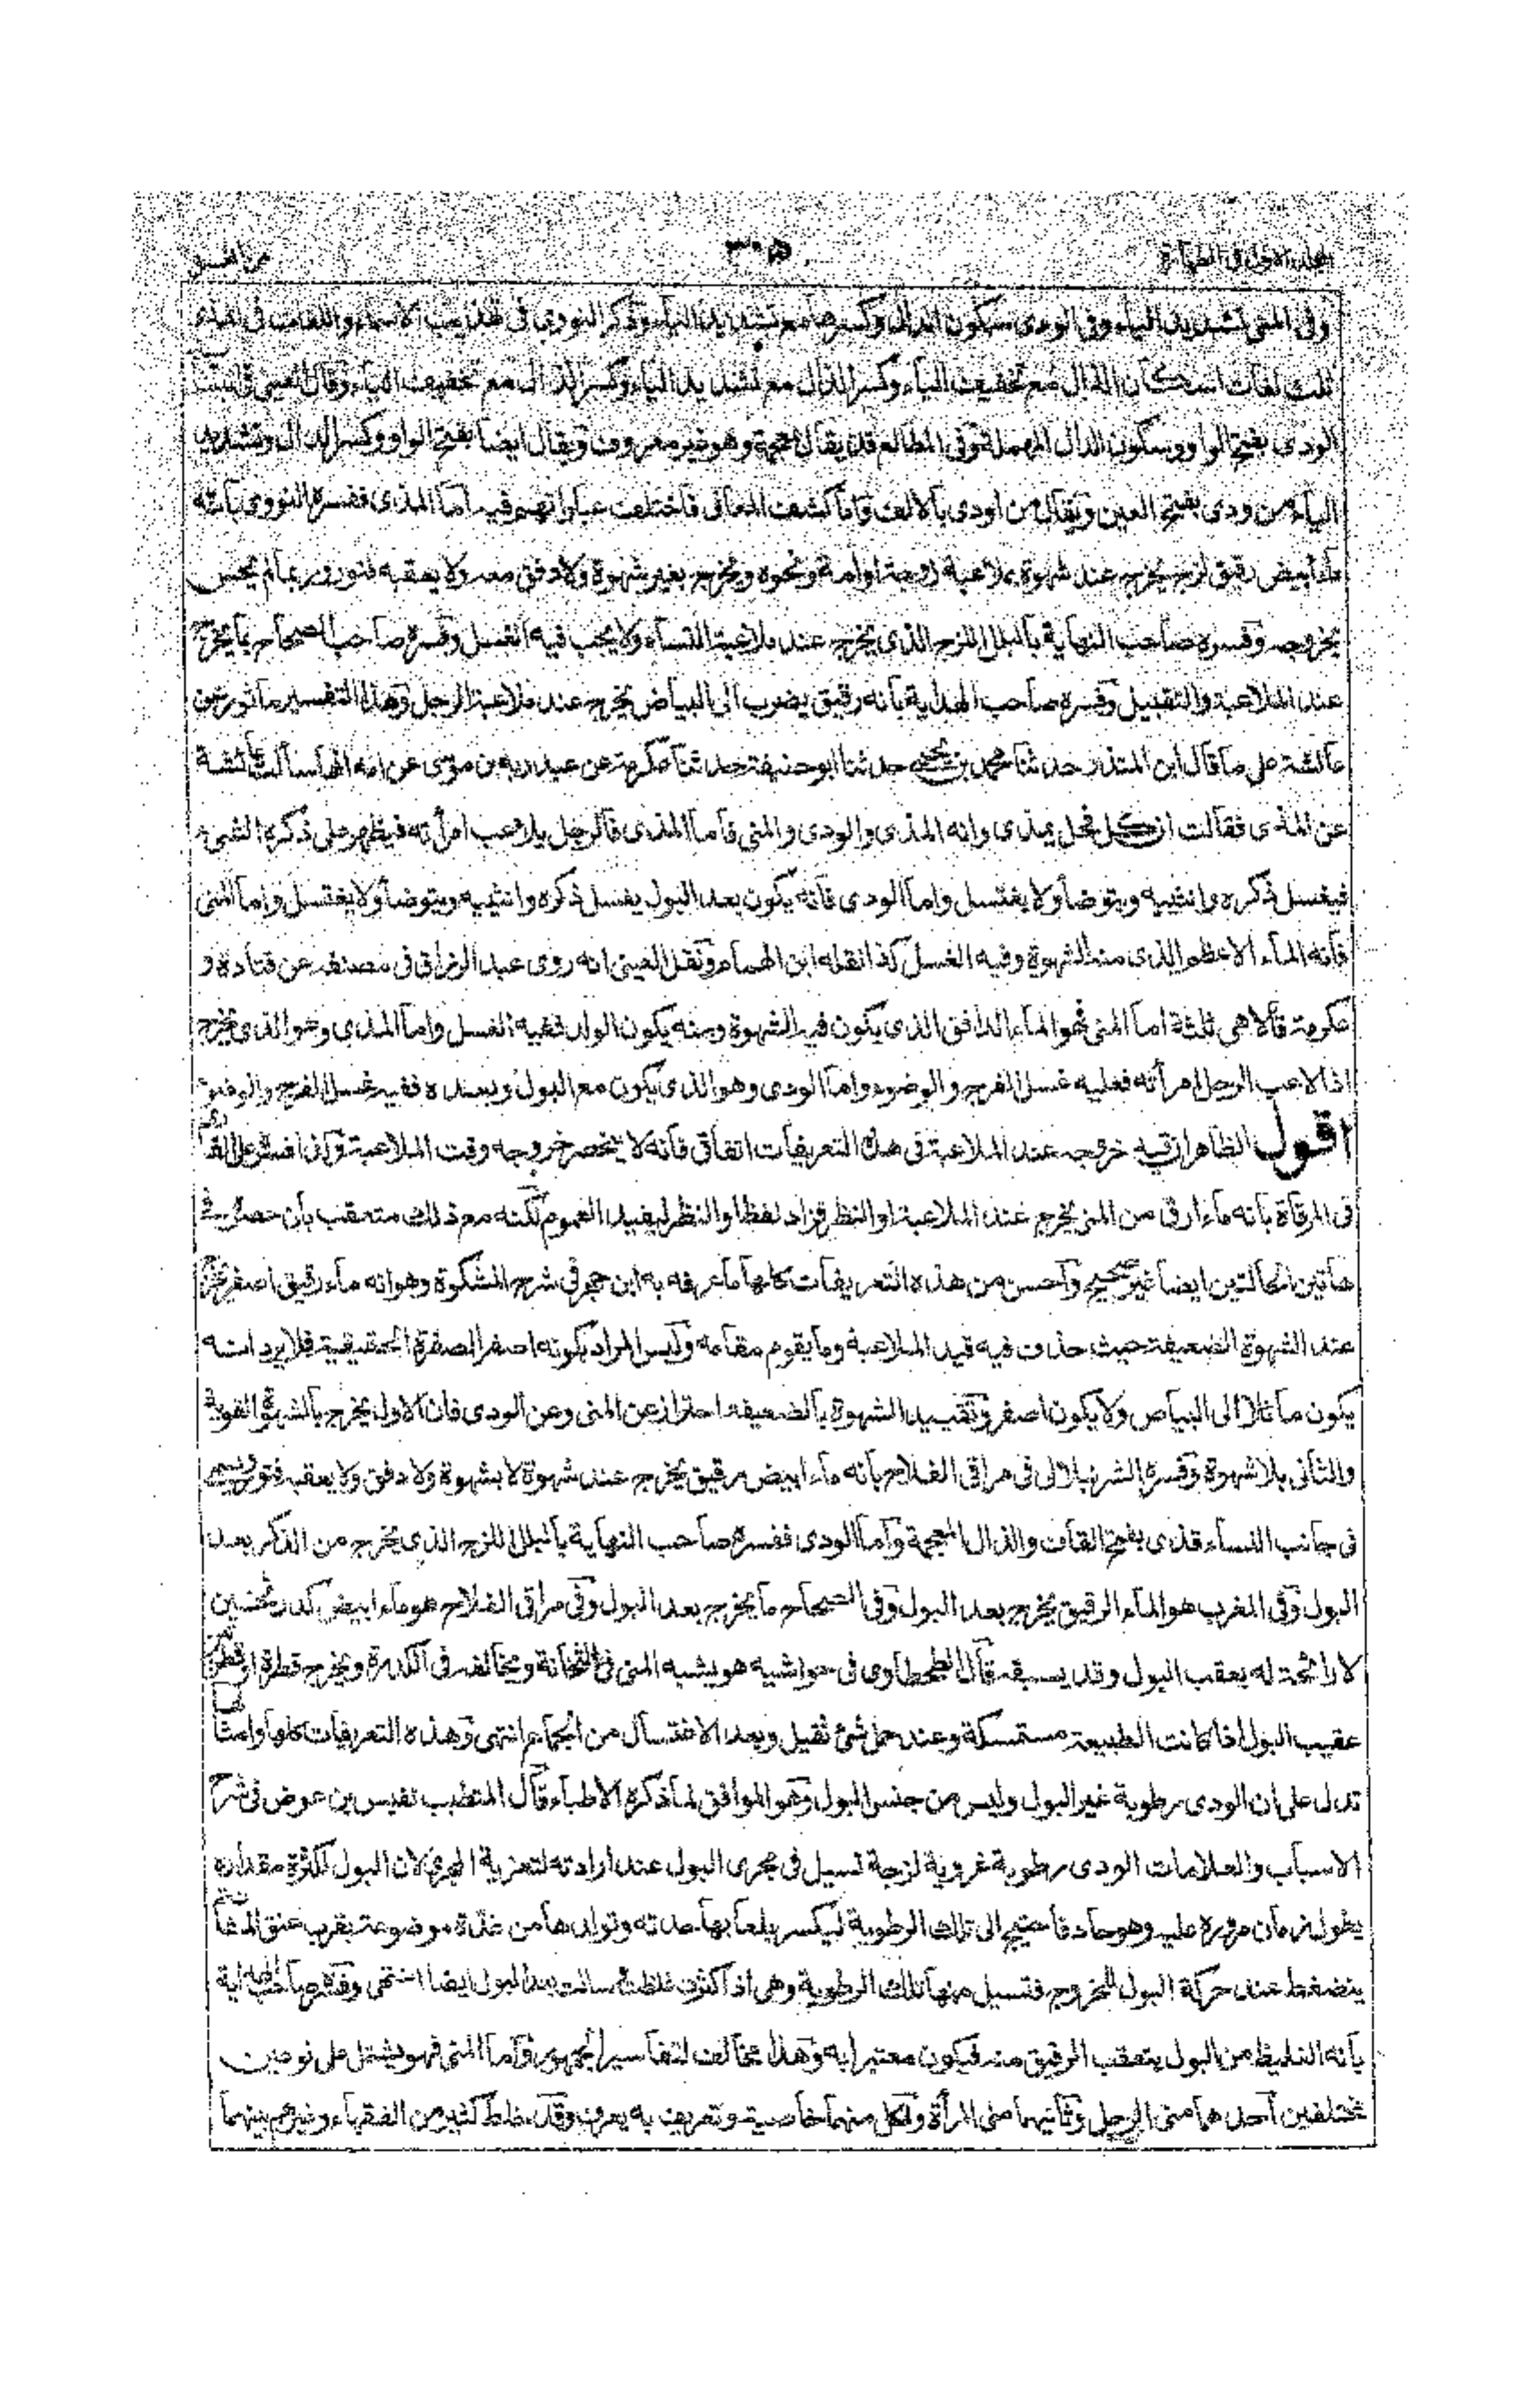 المجلد الاول فى الطهارة ٣٠٥
وفى المنى تشديد الياء وفى الودى سكون الدال وكسرها مع تشديد الياء وذكر النووى فى تهذيب الاسماء واللغات فى المذى
ثلث لغات اسكان الذال مع تخفيف الياء وكسر الذال مع تشديد الياء وكسر الذال مع تخفيف الياء وقال العينى فى
الودى بفتح الواو وسكون الدال المهملة وفى المطالع قد يقال بمعجمة وهو غير معروف ويقال ايضا بفتح الواو وكسر الدال وتشديد
الياء من ودى بفتح العين ويقال من اودى بالالف واما كشف المعانى فاختلفت عباراتهم فيه اما المذى ففسره النووى بانه
ماء ابيض رقيق لزج يخرج عند شهوة بملاعبة زوجة او امة ونحوه ويخرج بغير شهوة ولا دفق معه ولا يعقبه فتور وربما لم يحس
بخروجه وفسره صاحب النهاية بالبلل اللزج الذى يخرج عند ملاعبة النساء ولا يجب فيه الغسل وفسره صاحب الصحاح بما يخرج
عند الملاعبة والتقبيل وفسره صاحب الهداية بانه رقيق يضرب الى البياض يخرج عند ملاعبة الرجل وهذا التفسير ماثور عن
عائشة على ما قال ابن المنذر حدثنا محمد بن يحيى حدثنا ابو حنيفة حدثنا عكرمة عن عبد ربه بن موسى عن امه انها سألت عائشة
عن المذى فقالت ان كل فحل يمذى وانه المذى والودى والمنى فاما المذى فالرجل يلاعب امرأته فيظهر على ذكره الشئ
فيغسل ذكره وانثييه ويتوضأ ولا يغتسل واما الودى فانه يكون بعد البول يغسل ذكره وانثييه ويتوضأ ولا يغتسل واما المنى
فانه الماء الاعظم الذى منه الشهوة وفيه الغسل كذا نقله ابن الهمام ونقل العينى انه روى عبد الرزاق فى مصنفه عن قتادة و
عكرمة قالا هى ثلثة اما المنى فهو الماء الدافق الذى يكون فيه الشهوة ومنه يكون الولد ففيه الغسل واما المذى وهو الذى يخرج
اذا لاعب الرجل امرأته فعليه غسل الفرج والوضوء واما الودى وهو الذى يكون مع البول وبعده ففيه غسل الفرج والوضوء
اقول الظاهر ان قيد خروجه عند الملاعبة فى هذه التعريفات اتفاقى فانه لا ينحصر خروجه وقت الملاعبة ولذا فسره على القارى
فى المرقاة بانه ماء ارق من المنى يخرج عند الملاعبة او النظر فزاد لفظ او النظر ليفيد العموم لكنه مع ذلك متعقب بان حصره فى
هاتين الحالتين ايضا غير صحيح واحسن من هذه التعريفات كلها ما عرفه به ابن حجر فى شرح المشكوة وهو انه ماء رقيق اصفر يخرج
عند الشهوة الضعيفة حيث حذف فيه قيد الملاعبة وما يقوم مقامه وليس المراد بكونه اصفر الصفرة الحقيقية فلا يرد انه
يكون مائلا الى البياض ولا يكون اصفر وتقييد الشهوة بالضعيفة احتراز عن المنى وعن الودى فان الاول يخرج بالشهوة القوية
والثانى بلا شهوة وفسره الشرنبلالى فى مراقى الفلاح بانه ماء ابيض رقيق يخرج عند شهوة لا بشهوة ولا دفق ولا يعقبه فتور ويسمى
فى جانب النساء قذى بفتح القاف والذال المعجمة واما الودى ففسره صاحب النهاية بالبلل اللزج الذى يخرج من الذكر بعد
البول وفى المغرب هو الماء الرقيق يخرج بعد البول وفى الصحاح ما يخرج بعد البول وفى مراقى الفلاح هو ماء ابيض كدر ثخين
لا رائحة له يعقب البول وقد يسبقه قال الطحطاوى فى حواشيه هو يشبه المنى فى الثخانة ويخالفه فى الكدرة ويخرج قطرة او قطرتين
عقيب البول اذا كانت الطبيعة مستمسكة وعند حمل شئ ثقيل وبعد الاغتسال من الجماع انتهى وهذه التعريفات كلها وامثالها
تدل على ان الودى رطوبة غير البول وليس من جنس البول وهو الموافق لما ذكره الاطباء قال المتطبب نفيس بن عوض فى شرح
الاسباب والعلامات الودى رطوبة غروية لزجة تسيل فى مجرى البول عند ارادته لتغرية المجرى لان البول لكثرة مقداره
يطول زمان مروره عليه وهو حاد فاحتيج الى تلك الرطوبة ليكسر بلعابها حدته وتولدها من غدة موضوعة بقرب عنق المثانة
ينضغط عند حركة البول للخروج فتسيل منها تلك الرطوبة وهى اذا كثرت غلظت سالت بعد البول ايضا انتهى وفسره صاحب الهداية
بانه الغليظ من البول يتعقب الرقيق منه فيكون معتبرا به وهذا مخالف لتفاسير الجمهور واما المنى فهو يشتمل على نوعين
مختلفين احدهما منى الرجل وثانيهما منى المرأة ولكل منهما خاصية وتعريف به يعرف وقد خلط كثير من الفقهاء وغيرهم بينهما